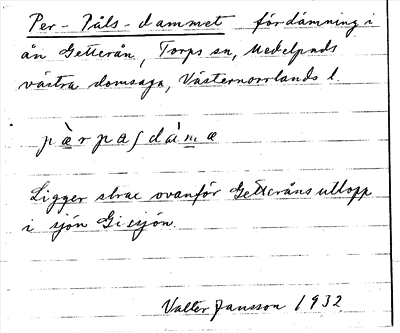 Per-Påls-dammet fördämning i
ån Getterån, Torps sn, Medelpads
västra domsaga, Västernorrlands l.
pæ̀rpaʃdám̀æ
Ligger strax ovanför Getteråns utlopp
i sjön Gissjön.
Valter Jansson 1932